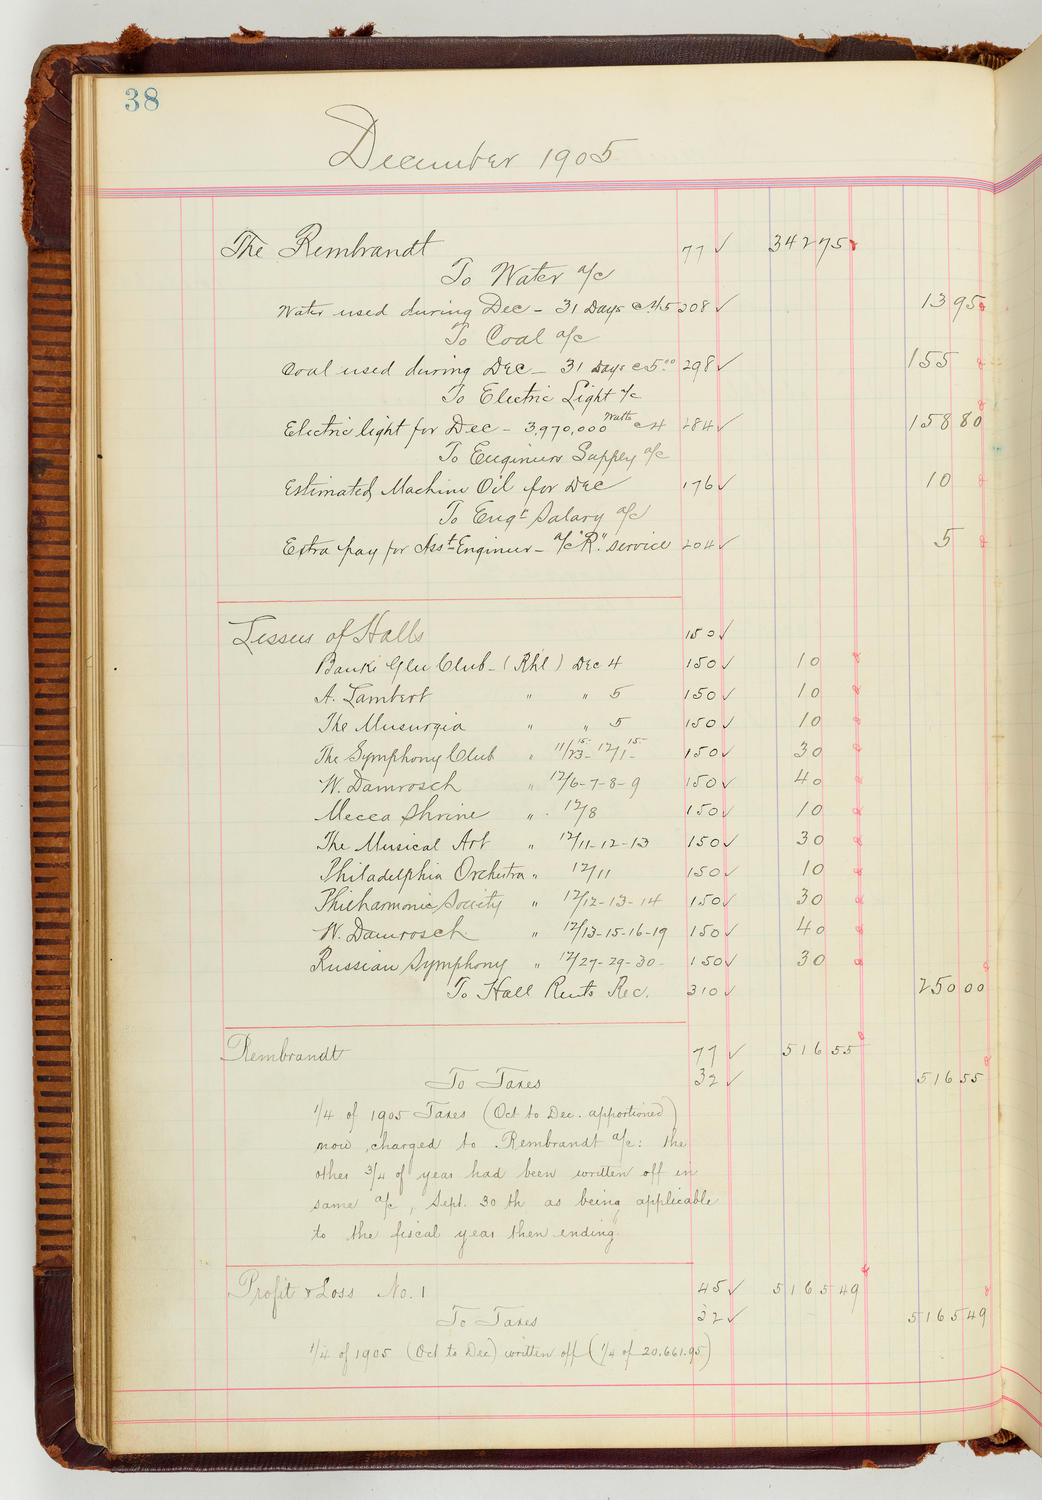 38
December 1905
The Rembrandt 77 ✓ 342 75
To Water a/c
Water used during Dec - 31 Days @ .45 208 ✓ 13 95
To Coal a/c
Coal used during Dec - 31 Days @ 5.00 298 ✓ 155
To Electric Light a/c
Electric light for Dec - 3,970,000 Watts @ 4 284 ✓ 158 80
To Engineers Supply a/c
Estimated Machine Oil for Dec 176 ✓ 10
To Engr Salary a/c
Extra pay for Asst Engineer - a/c "R." Service 204 ✓ 5
Lessees of Halls 150 ✓
Banks Glee Club - (Rhl) Dec 4 150 ✓ 10
A. Lambert " " 5 150 ✓ 10
The Musurgia " " 5 150 ✓ 10
The Symphony Club " 11/23 15- 12/1 15- 150 ✓ 30
W. Damrosch " 12/6-7-8-9 150 ✓ 40
Mecca Shrine " 12/8 150 ✓ 10
The Musical Art " 12/11-12-13 150 ✓ 30
Philadelphia Orchestra " 12/11 150 ✓ 10
Philharmonic Society " 12/12-13-14 150 ✓ 30
W. Damrosch " 12/13-15-16-19 150 ✓ 40
Russian Symphony " 12/27-29-30- 150 ✓ 30
To Hall Rents Rec. 310 ✓ 250 00
Rembrandt 77 ✓ 516 55
To Taxes 32 ✓ 516 55
1/4 of 1905 Taxes (Oct to Dec. apportioned)
now charged to Rembrandt a/c: the
other 3/4 of year had been written off in
same a/c, Sept. 30th as being applicable
to the fiscal year then ending
Profit & Loss No. 1 45 ✓ 5165 49
To Taxes 32 ✓ 5165 49
1/4 of 1905 (Oct to Dec) written off (1/4 of 20,661.95)